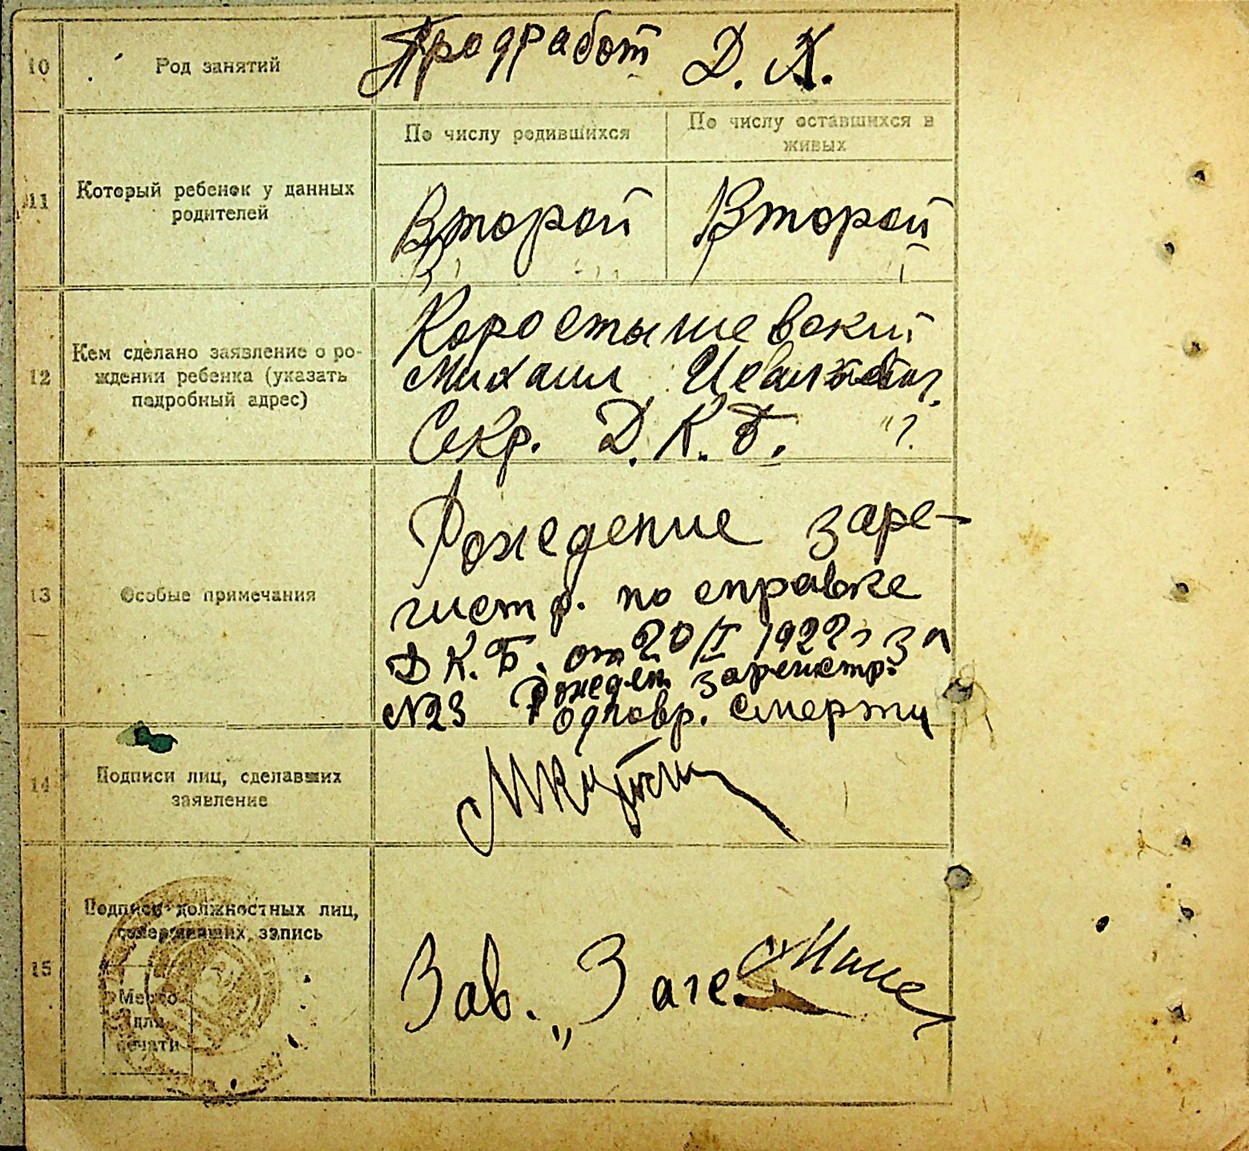 10 Род занятий Продработ Д. Х.
По числу родившихся
По числу оставшихся в
живых
11 Который ребенок у данных
родителей
Второй Второй
12 Кем сделано заявление о ро-
ждении ребенка (указать
подробный адрес)
Коростышевский
Михаил
Секр. Д. К. Б. "?
13 Особые примечания
Рождение заре-
гистр. по справке
Д К. Б. от 20/I 1922 г за
№23 Рожден зарегистр.
одновр. смерти
14 Подписи лиц, сделавших
заявление
15 Подписи должностных лиц,
совершивших запись
Место
для
печати
Зав. „Загс